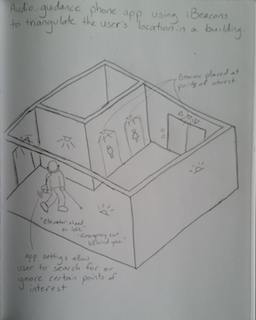 Audio guidance phone app using iBeacons
to triangulate the user's location in a building.
Beacons placed at
points of interest
"Elevator ahead
to left"
"Emergency exit
behind you"
App settings allow
user to search for or
ignore certain points of
interest